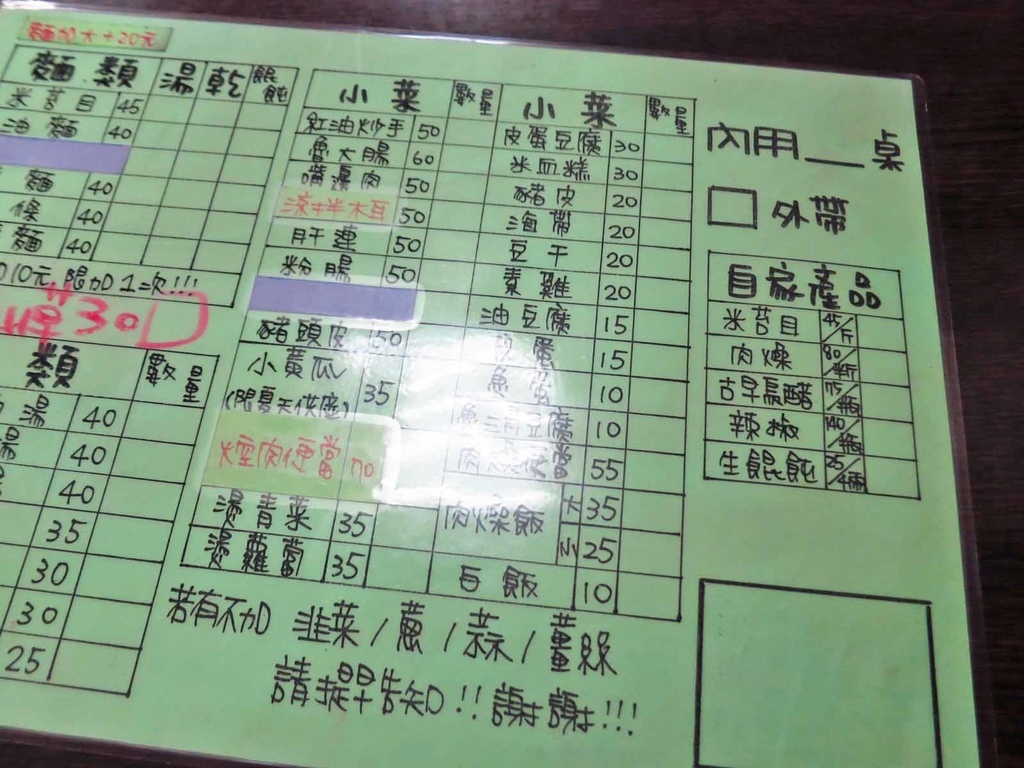 麵加大+20元
麵類 湯 乾 餛飩
米苔目 45
油麵 40
麵 40
條 40
麵 40
10元,限加1次!!!
單30
小菜 數量
紅油炒手 50
魯大腸 60
嘴邊肉 50
涼拌木耳 50
肝連 50
粉腸 50
豬頭皮 50
小黃瓜 35
(限夏天供應)
焢肉便當 70
燙青菜 35
燙蘿蔔 35
小菜 數量
皮蛋豆腐 30
米血糕 30
豬皮 20
海帶 20
豆干 20
素雞 20
油豆腐 15
蛋 15
魚蛋 10
魚三角豆腐 10
肉燥便當 55
肉燥飯 大 35
小 25
白飯 10
類 數量
湯 40
湯 40
40
35
30
30
25
內用__桌
外帶
自家產品
米苔目 45/斤
肉燥 80/斤
古早烏醋 175/瓶
辣椒 140/瓶
生餛飩 25/4個
若有不加 韭菜/蔥/蒜/薑絲
請提早告知!!謝謝!!!